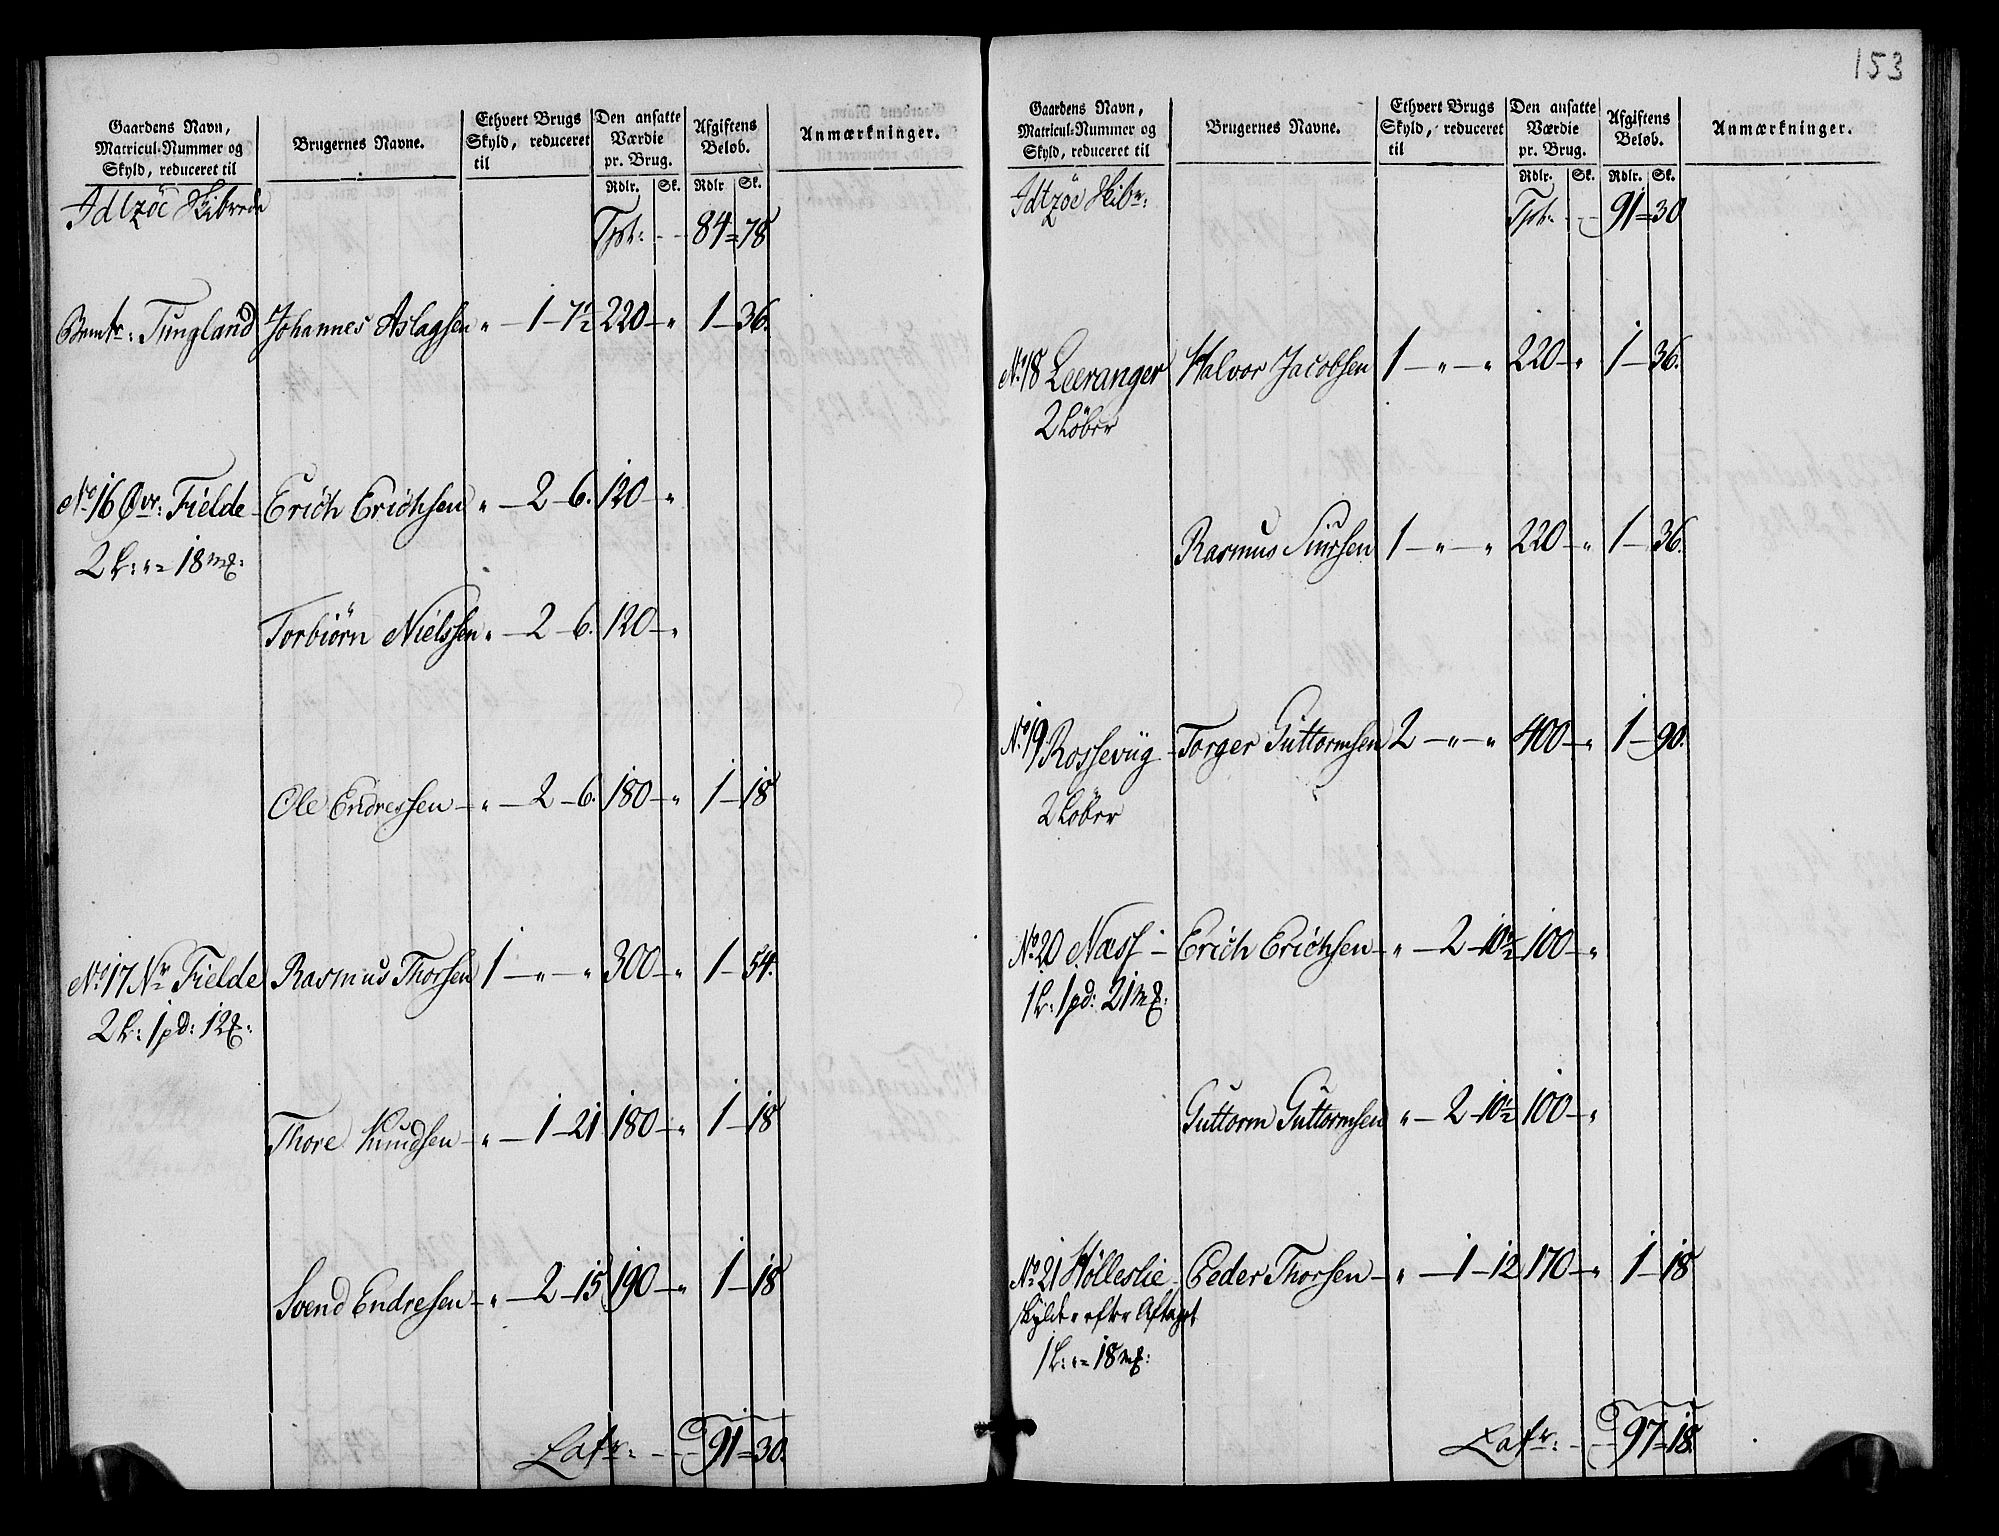 153
Gaardens Navn, Matricul-Nummer og Skyld, reduceret til
Brugernes Navne.
Ethvert Brugs Skyld, reduceret til
Den ansatte Værdie pr. Brug.
Afgiftens Beløb.
Anmærkninger.
Rdlr. Sk. Rdlr Sk.
Idtzöe Skibrede
Tpt: - - 84 = 78
Tungland Johannes Aslagsen " — 1 — 7½ 220 — " 1 — 36.
No 16 Øvr: Fielde Erich Erichsen " — 2 — 6. 120 — "
2 L: " = 18 m{:
Torbiörn Nielssen " — 2 — 6. 120 — "
Ole Endressen — " — 2 — 6. 180 — " 1 — 18
No 17 Nr Fielde Rasmus Thorsen 1 — " — " 300 — " 1 — 54.
2 L: 1 pd: 12{:
Thore Knudsen — " — 1 — 21 180 — " 1 — 18
Svend Endresen — " — 2 — 15 190 — " 1 — 18
Latr: - - 91 = 30.
Gaardens Navn, Matricul-Nummer og Skyld, reduceret til
Brugernes Navne.
Ethvert Brugs Skyld, reduceret til
Den ansatte Værdie pr. Brug.
Afgiftens Beløb.
Anmærkninger.
Rdlr. Sk. Rdlr. Sk.
Idtzöe Skibr:
Tpt: - - 91 = 30
No 18 Leeranger Halvor Jacobsen 1 — " — " 220 — " 1 — 36.
2 Löber
Rasmus Siursen 1 — " — " 220 — " 1 — 36.
No 19 Rossevüg Torger Guttormsen 2 — " — " 400 — " 1 — 90.
2 Löber
No 20 Næss — Erich Erichsen — " — 2 — 10½ 100 — "
1 L: 1 pd: 21 m{:
Guttorm Guttormsen " — 2 — 10½ 100 — "
No 21 Hölleslie Peder Thorsen — " — 1 — 12 170 — " 1 — 18
skylder efter Aftaget
1 L: " = 18 m{:
Latr: - - 97 = 18.